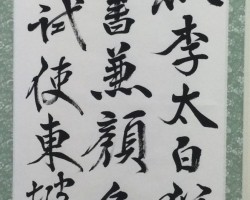 李太白
書兼顏
試使東坡